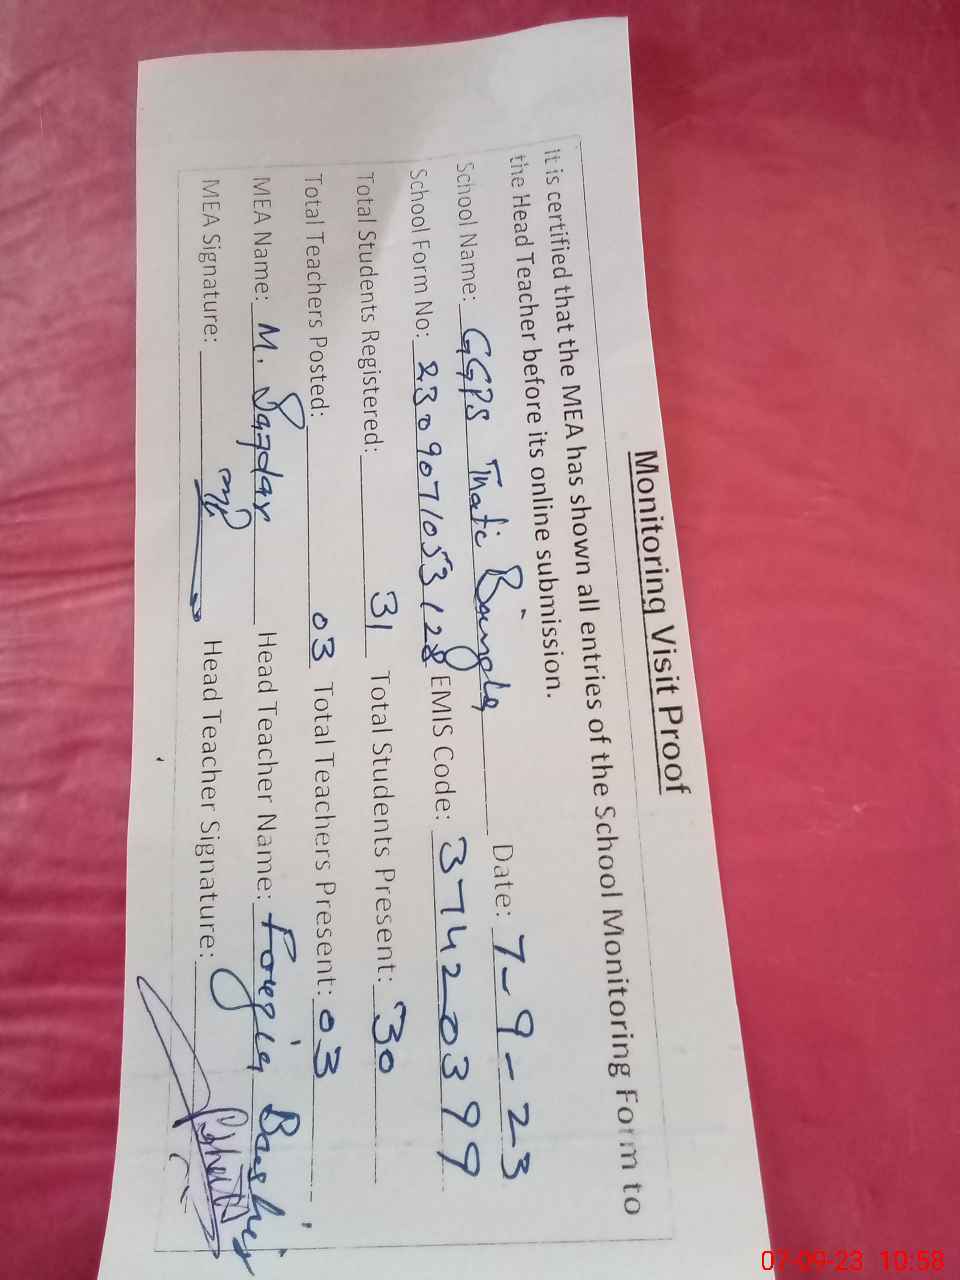 Monitoring Visit Proof
It is certified that the MEA has shown all entries of the School Monitoring Form to
the Head Teacher before its online submission.
School Name: GGPS Thati Date: 7-9-23
School Form No: 2309071053128 EMIS Code: 37420399
Total Students Registered: 31 Total Students Present: 30
Total Teachers Posted: 03 Total Teachers Present: 03
MEA Name: M. Head Teacher Name: Bashir
MEA Signature: Head Teacher Signature:
07-09-23 10:58